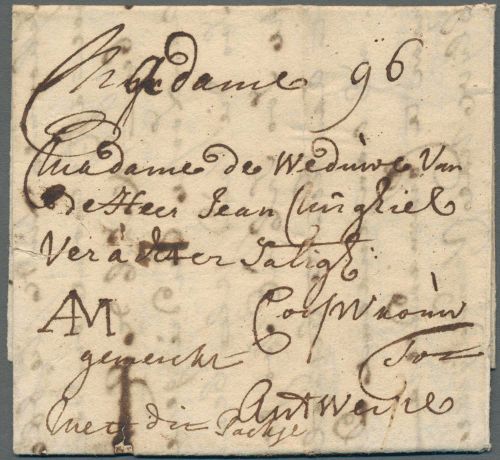 Madame 96
Madame de Weduwe Van
de Heer Jean
Verachter Salig
Coopvrouw
AM Tot
gemerckt
Antwerpe
met dit Packje